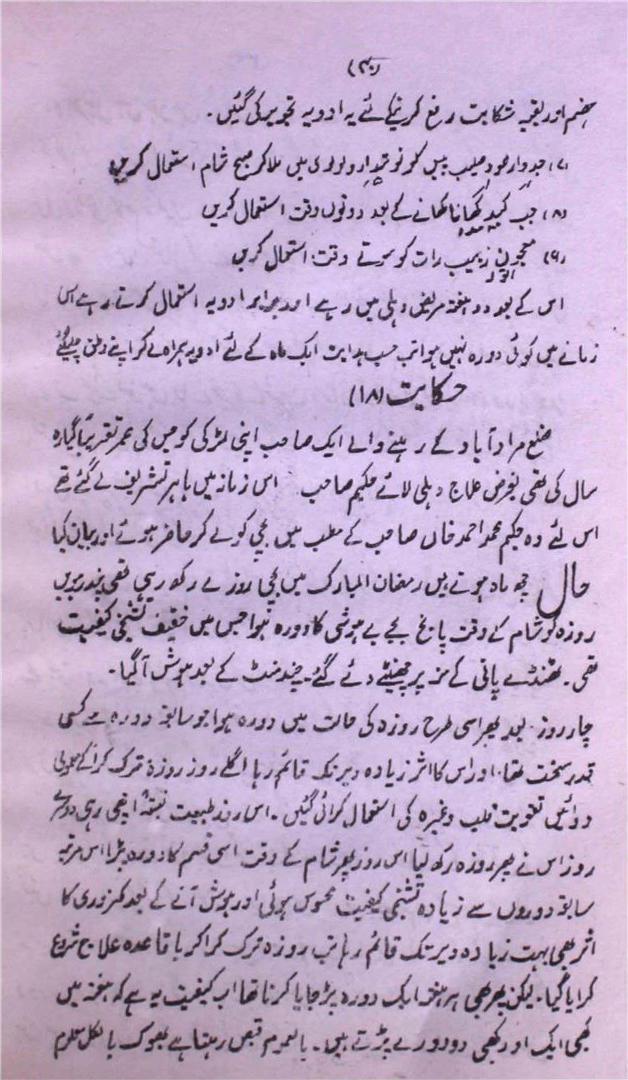 (۴۰)
ہضم اور بقیہ شکایت رفع کرنیکے لئے یہ ادویہ تجویز کی گئیں۔
(۷) جدوار عود صلیب پیس کر میں ملا کر صبح شام استعمال کریں
(۸) حب کبد کھانا کھانے کے بعد دونوں وقت استعمال کریں
(۹) معجون زبیب رات کو سوتے وقت استعمال کریں
اس کے بعد دو ہفتہ مریض دہلی میں رہے اور برابر ادویہ استعمال کرتے رہے اس
زمانے میں کوئی دورہ نہیں ہوا تب حسب ہدایت ایک ماہ کے لئے ادویہ ہمراہ لے کر اپنے وطن چلے گئے
حکایت (۱۸)
ضلع مراد آباد کے رہنے والے ایک صاحب اپنی لڑکی کو جس کی عمر تقریباً گیارہ
سال کی تھی بغرض علاج دہلی لائے حکیم صاحب اس زمانہ میں باہر تشریف لے گئے تھے
اس لئے وہ حکیم محمد احمد خاں صاحب کے مطب میں بچی کو لے کر حاضر ہوئے اور بیان کیا
حال چھ ماہ ہوتے ہیں رمضان المبارک میں بچی روزے رکھ رہی تھی پندرہویں
روزہ کو شام کے وقت پانچ بجے بے ہوشی کا دورہ ہوا جس میں خفیف تشنجی کیفیت
تھی۔ ٹھنڈے پانی کے منہ پر چھینٹے دئے گئے۔ چند منٹ کے بعد ہوش آگیا۔
چار روز بعد پھر اسی طرح روزہ کی حالت میں دورہ ہوا جو سابقہ دورہ سے کسی
قدر سخت تھا اور اس کا اثر زیادہ دیر تک قائم رہا اگلے روز روزہ ترک کرا کے معمولی
دوائیں تقویت قلب وغیرہ کی استعمال کرائی گئیں۔ اس روز طبیعت نسبتہً اچھی رہی دوسرے
روز اس نے پھر روزہ رکھ لیا اس روز پھر شام کے وقت اسی قسم کا دورہ پڑا اس مرتبہ
سابقہ دوروں سے زیادہ تشنجی کیفیت محسوس ہوئی اور ہوش آنے کے بعد کمزوری کا
اثر بھی بہت زیادہ دیر تک قائم رہا تب روزہ ترک کرا کر باقاعدہ علاج شروع
کرایا گیا۔ لیکن پھر بھی ہر ہفتہ ایک دورہ پڑ جایا کرتا تھا اب کیفیت یہ ہے کہ ہفتہ میں
کبھی ایک اور کبھی دو دورے پڑتے ہیں۔ بالعموم قبض رہتا ہے بھوک بالکل معلوم